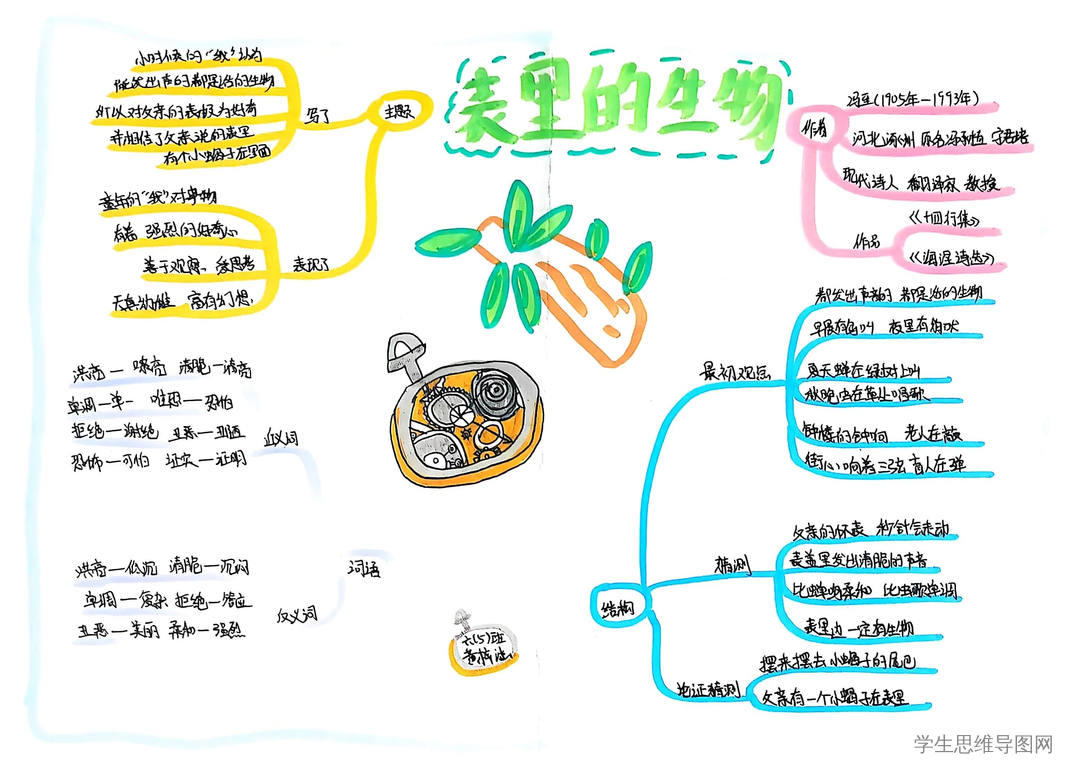 表里的生物
主题
写了
小时候的“我”认为
能发出声的都是活的生物
所以对父亲的表极为好奇
并相信了父亲说的表里
有个小蝎子在里面
表现了
童年的“我”对事物
有着 强烈的好奇心
善于观察、爱思考
天真幼稚 富有幻想。
作者
冯至(1905年-1993年)
河北涿州 原名冯承植 字君培
现代诗人 翻译家 教授
作品
《十四行集》
结构
最初观念
都发出声音的 都是活的生物
早晨有鸟叫 夜里有狗吠
夏天蝉在绿树上叫
秋晚虫在草处唱歌
钟楼的钟响 老人在敲
街心响着三弦 盲人在弹
猜测
父亲的怀表 秒针会走动
表盖里发出清脆的声音
比蝉鸣柔和 比虫歌单调
表里边一定有生物
论证猜测
摆来摆去 小蝎子的尾巴
父亲有一个小蝎子在表里
词语
近义词
洪亮—嘹亮 清脆—清亮
单调—单一 唯恐—恐怕
拒绝—谢绝 丑恶—丑陋
恐怖—可怕 证实—证明
反义词
洪亮—低沉 清脆—沉闷
单调—复杂 拒绝—答应
丑恶—美丽 柔和—强烈
六(5)班
学生思维导图网